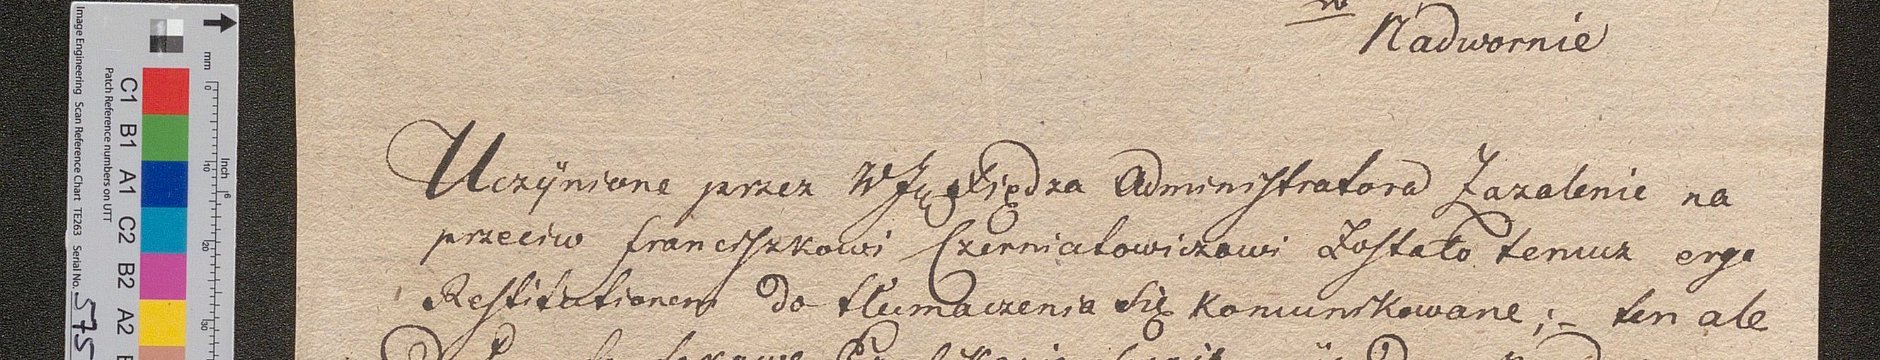 w
Nadwornie
Uczÿnione przez Xiędza Administratora Zazalenie na
przeciw franciszkowi Czerniatowiczowi Zostało temuz erga
Restitutionem do tłumaczenia się komunikowane; – ten ale
Image Engineering Scan Reference Chart TE263 Serial No. 575
Patch Reference numbers on UTT
C1 B1 A1 C2 B2 A2
mm 0 10 20 30
Inch 6